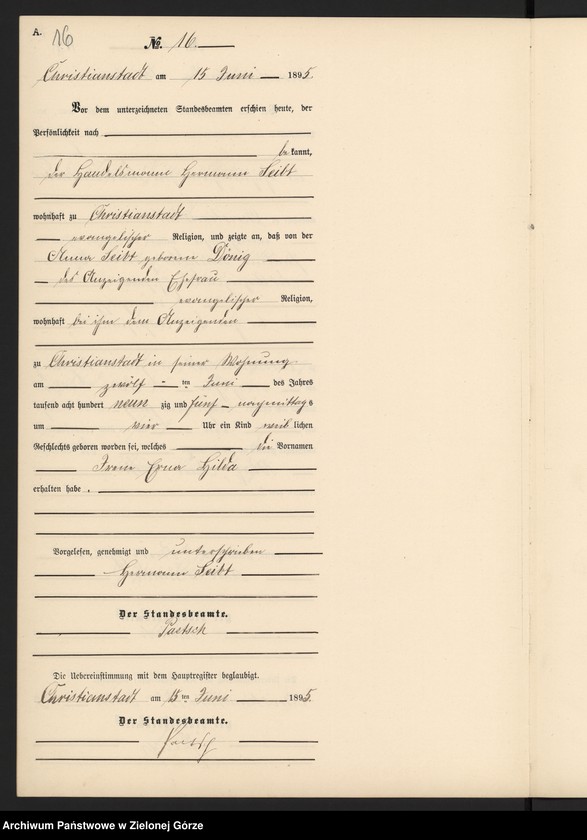 A. 16
No. 16.
Christianstadt am 15 Juni 1895.
Vor dem unterzeichneten Standesbeamten erschien heute, der
Persönlichkeit nach
be kannt,
der Handelsmann Hermann Seibt
wohnhaft zu Christianstadt
evangelischer Religion, und zeigte an, daß von der
Anna Seibt geborene Dönig
des Anzeigenden Ehefrau
evangelischer Religion,
wohnhaft bei ihm dem Anzeigenden
zu Christianstadt in seiner Wohnung
am zwölf ten Juni des Jahres
tausend acht hundert neun zig und fünf nachmittags
um vier Uhr ein Kind weib lichen
Geschlechts geboren worden sei, welches die Vornamen
Irene Erna Hilda
erhalten habe .
Vorgelesen, genehmigt und unterschrieben
Hermann Seibt
Der Standesbeamte.
Paetsch
Die Uebereinstimmung mit dem Hauptregister beglaubigt.
Christianstadt am 15 ten Juni 1895.
Der Standesbeamte.
Paetsch
Archiwum Państwowe w Zielonej Górze